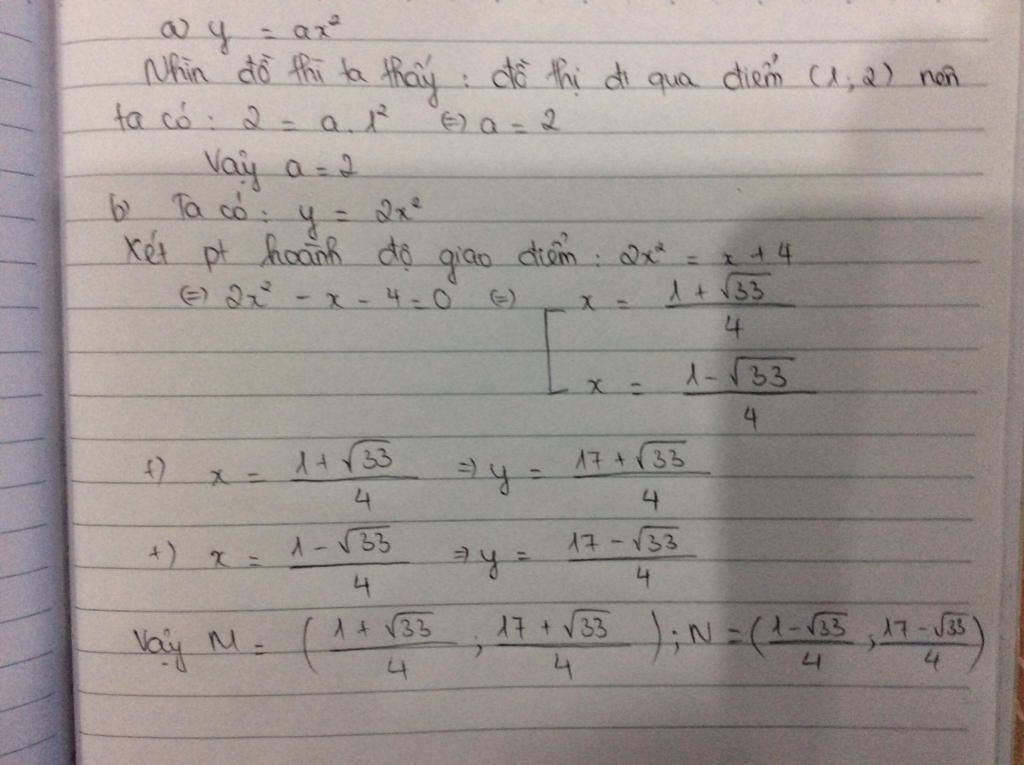 a) y = ax²
Nhìn đồ thị ta thấy : đồ thị đi qua điểm (1; 2) nên
ta có : 2 = a . 1² (=) a = 2
Vậy a = 2
b) Ta có : y = 2x²
Xét pt hoành độ giao điểm : 2x² = x + 4
(=) 2x² - x - 4 = 0 (=) [ x = (1 + √33)/4
x = (1 - √33)/4
+) x = (1 + √33)/4 => y = (17 + √33)/4
+) x = (1 - √33)/4 => y = (17 - √33)/4
Vậy M = ((1 + √33)/4 ; (17 + √33)/4) ; N = ((1 - √33)/4 ; (17 - √33)/4)